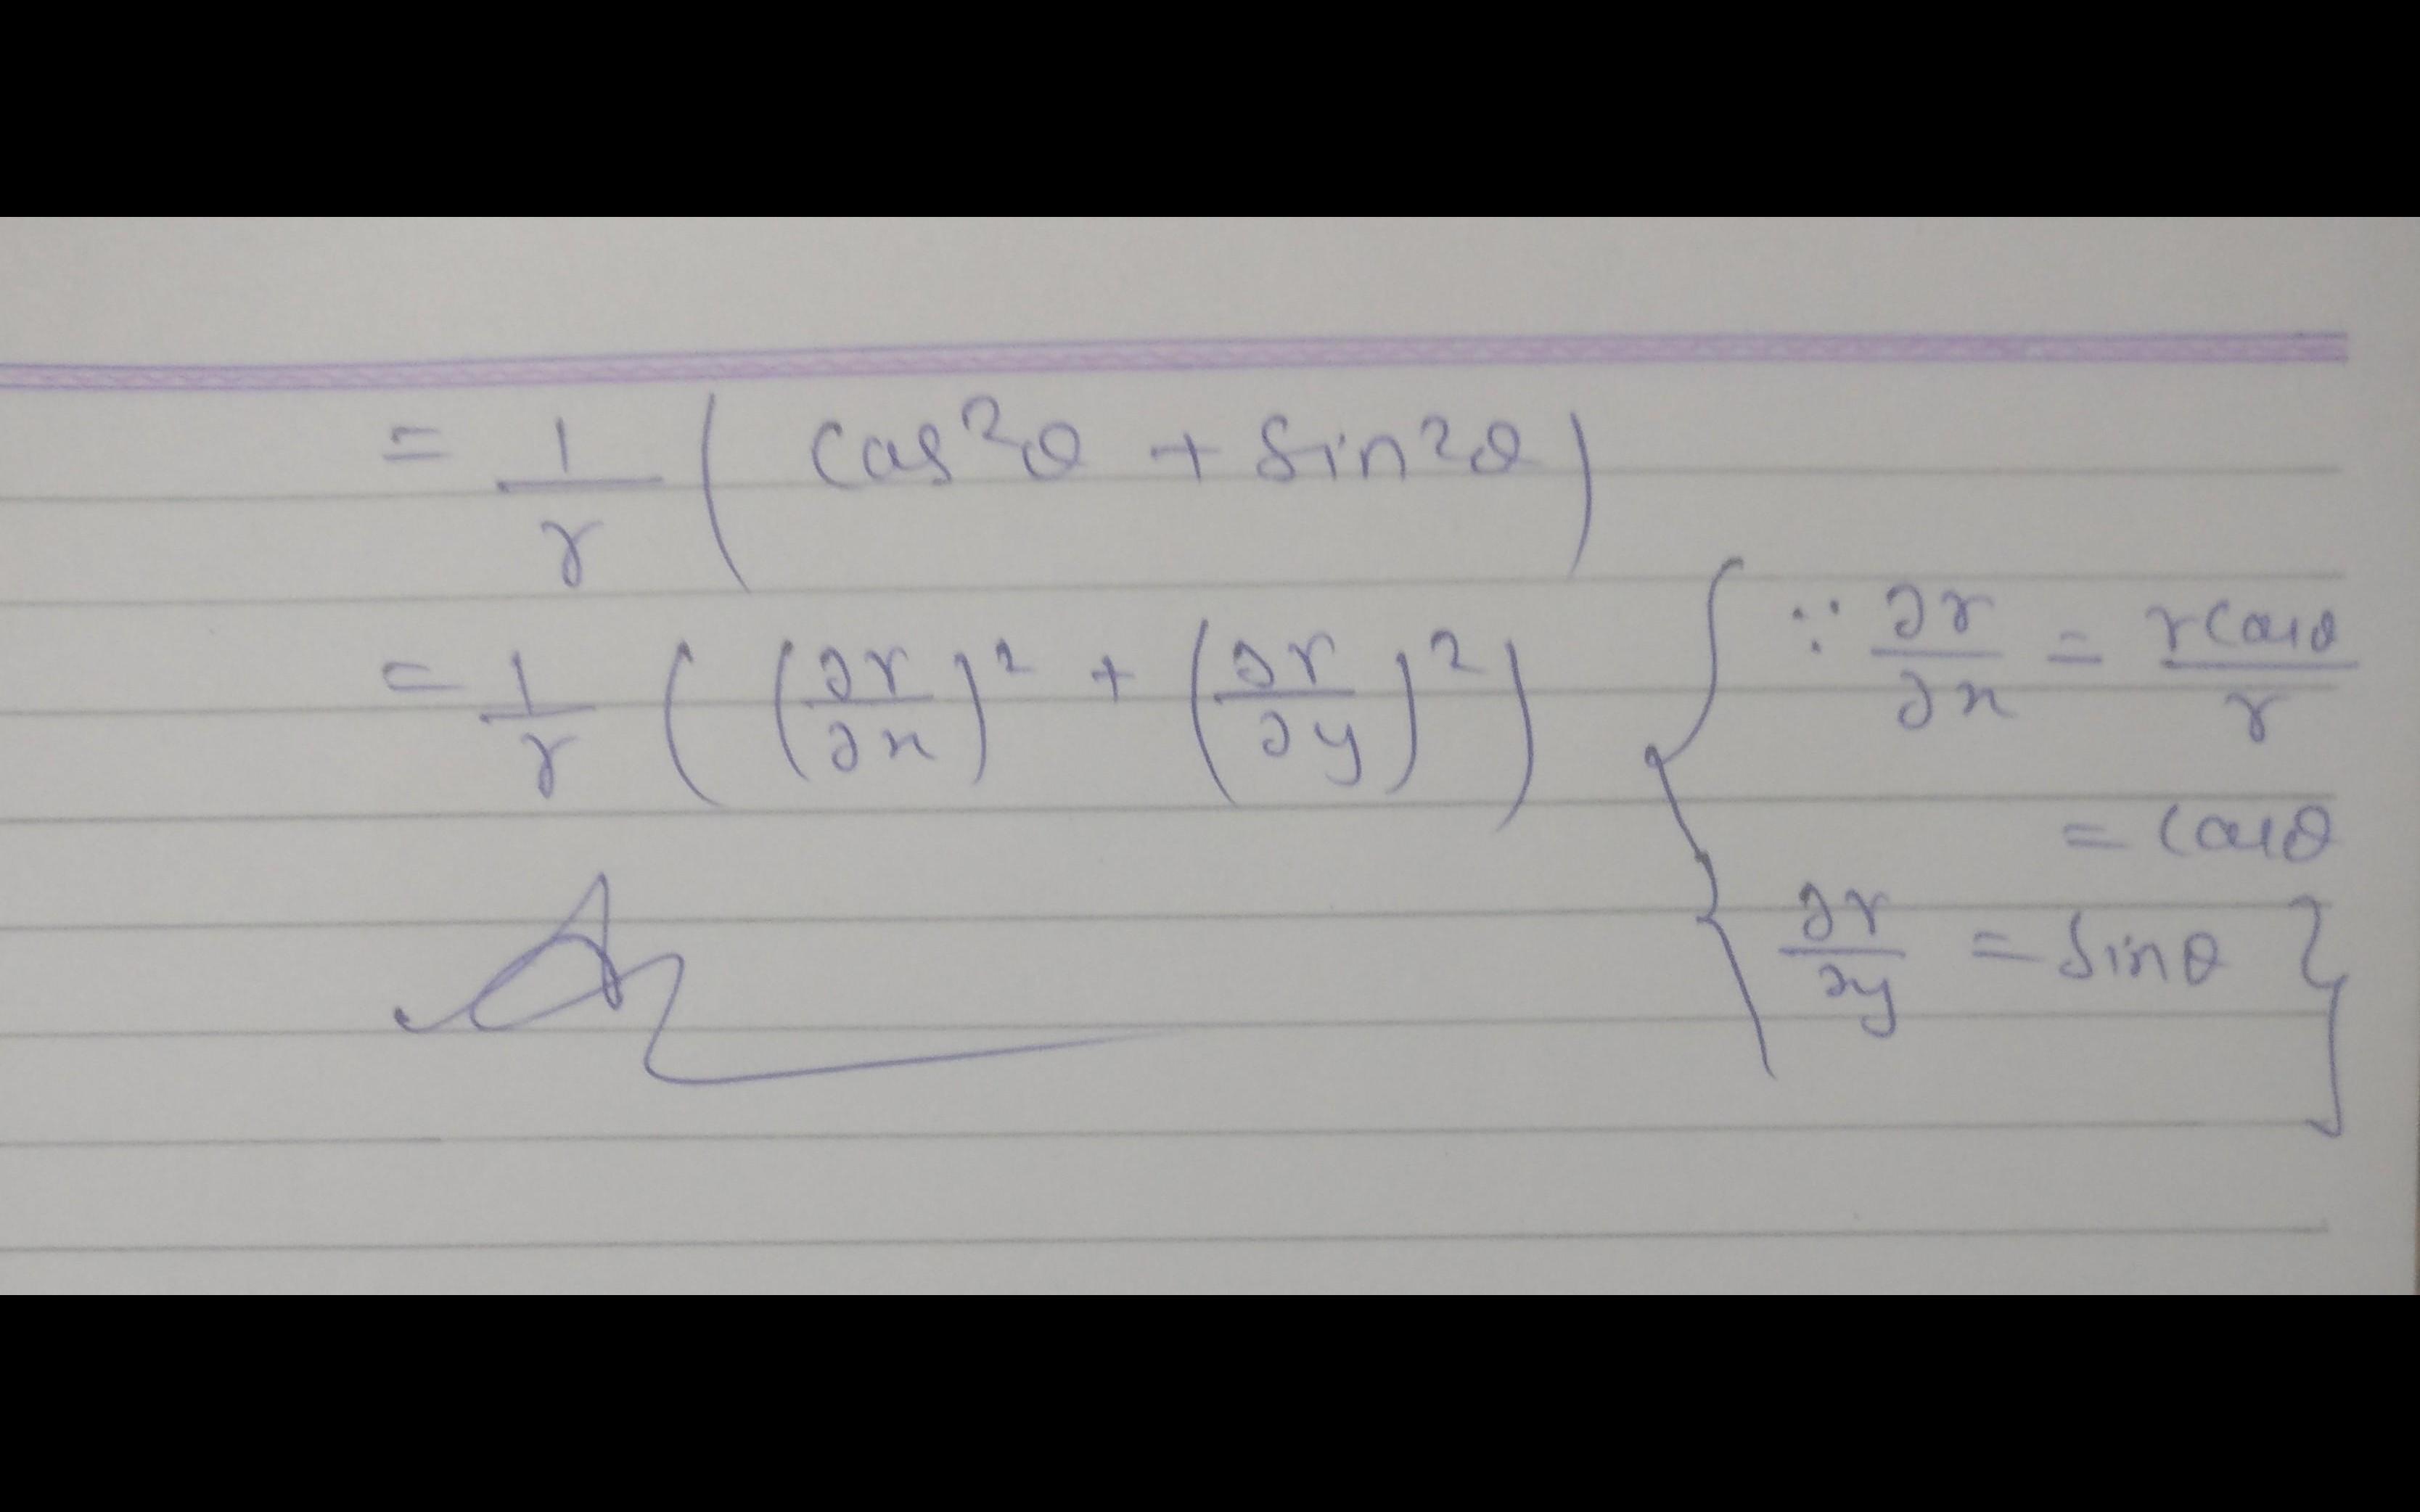 = 1/r ( cos²θ + sin²θ )
= 1/r ( (∂r/∂x)² + (∂r/∂y)² ) { ∵ ∂r/∂x = rcosθ/r
= cosθ
∂r/∂y = sinθ }